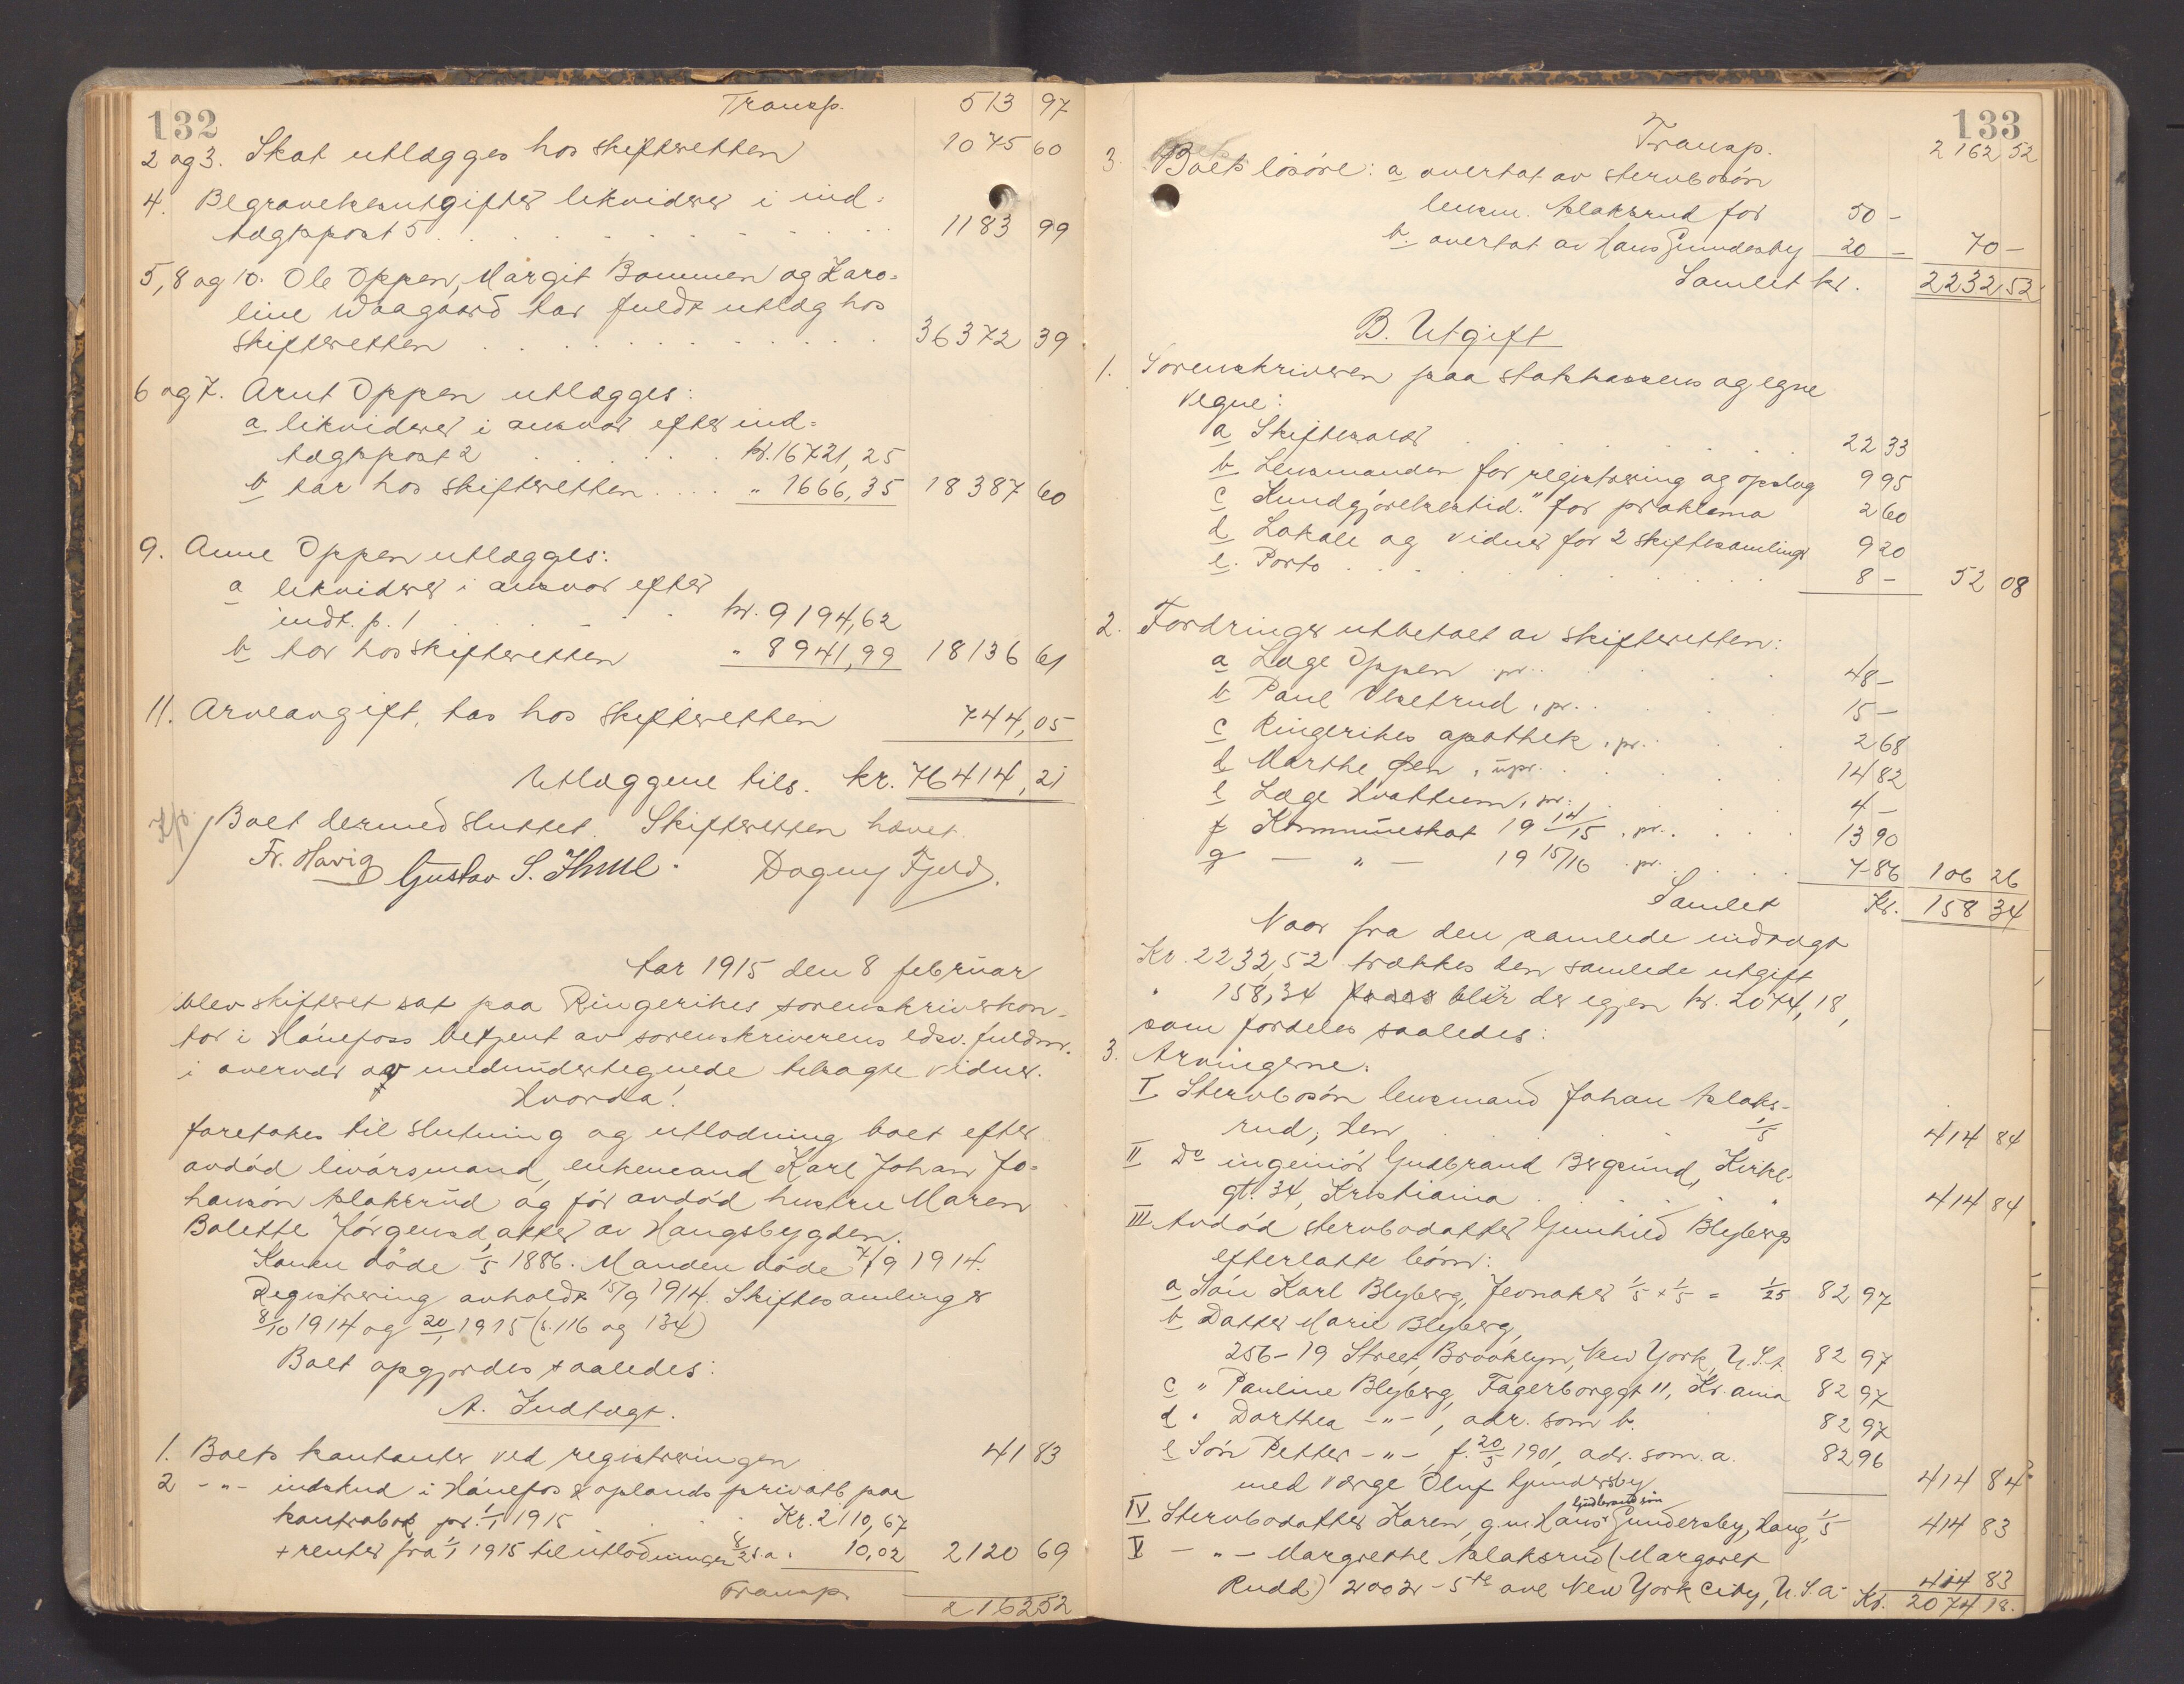 132
Transp. 513 97
2 og 3. Skat utlægges hos skifteretten 1075 60
4. Begravelsesutgifter likvideres i ind=
tægtspost 5 1183 99
5, 8 og 10. Ole Oppen, Margit Bommen og Karo=
line Waagaard tar fuldt utlæg hos
skifteretten 36372 39
6 og 7. Arnt Oppen utlægges:
a likvideres i ansvar efter ind=
tægtspost 2 kr. 16721,25
b tar hos skifteretten " 1666,35 18387 60
9. Anne Oppen utlægges:
a likvideres i ansvar efter
indt. p. 1 kr. 9194,62
b tar hos skifteretten " 8941,99 18136 61
11. Arveavgift, tas hos skifteretten 744,05
Utlæggene tils. kr. 76414,21
Boet dermed sluttet. Skifteretten hævet.
Fr. Havig Gustav S. Ihme. Dagny Fjeld.
Aar 1915 den 8 februar
blev skifteret sat paa Ringerikes sorenskriverkon-
tor i Hönefoss betjent av sorenskriverens edsv. fuldm.
i overvær av medundertegnede tilkaldte vidner.
Hvorda!
foretokes til slutning og utlodning boet efter
avdöd livörsmand, enkemand Karl Johan Jo=
hansön Aslaksrud og för avdöd hustru Maren
Bolette Jörgensdatter av Haugsbygden.
Konen döde 1/5 1886. Manden döde 7/9 1914.
Registrering avholdt 15/9 1914. Skiftesamlinger
8/10 1914 og 20/1 1915 (s. 116 og 134)
Boet opgjordes saaledes:
A. Indtægt.
1. Boets kontanter ved registreringen 41 83
2 -"- indskud i Hönefos & oplands privatb. paa
kontrabok pr. 1/1 1915 Kr. 2110,67
+ renter fra 1/1 1915 til utlodningen 8/2 s.a. 10,02 2120 69
Transp. 2162 52
133
Transp. 2162 52
3. Boets lösöre: a overtat av stervbosön
lensm. Aslaksrud for 50 -
b. overtat av Hans Gundersby 20 - 70 -
Samlet kr. 2232 52
B. Utgift
1. Sorenskriveren paa statskassens og egne
vegne:
a Skiftesalær 22 33
b Lensmanden for registrering og opslag 9 95
c Kundgjörelsestid." for proklama 2 60
d Lokale og vidner for 2 skiftesamlinger 9 20
e. Porto 8 - 52 08
2. Fordringer utbetalt av skifteretten:
a Læge Oppen pr. 48 -
b Paul Ulsetrud , pr. 15 -
c Ringerikes apothek , pr. 2 68
d Marthe Öen , upr. 14 82
e Læge Kvatteum, pr. 4 -
f Kommuneskat 19 14/15 , pr. 13 90
g - " - 19 15/16 pr. 7 86 106 26
Samlet Kr. 158 34
Naar fra den samlede indtægt
Kr. 2232,52 trækkes den samlede utgift
" 158,34 blir der igjen kr. 2074,18,
som fordeles saaledes:
3. Arvingerne.
I Stervbosön lensmand Johan Aslaks-
rud, Hen 1/5 414 84
II Do ingeniör Gudbrand Bergsund, Kirke-
gt. 34, Kristiania " 414 84
III Avdöd stervbodatter Gunhild Blybergs
efterlatte börn:
a Sön Karl Blyberg, Jevnaker 1/5 x 1/5 = 1/25 82 97
b Datter Marie Blyberg,
256-19 Street, Brooklyn, New York, U.S.A 82 97
c " Pauline Blyberg, Fagerborggt 11, Kr.ania 82 97
d " Dorthea -"-, adr. som b. 82 97
e Sön Petter -"-, f. 20/5 1901, adr. som a. 82 96
med værge Oluf Gundersby 414 84
IV Stervbodatter Karen g.m. Hans Gudbrandsön Gundersby, Haug, 1/5 414 83
V -"- Margrethe Aslaksrud (Margaret
Rudd) 2002 - 5te ave New York City, U.S.A 414 83
Kr. 2074 18.